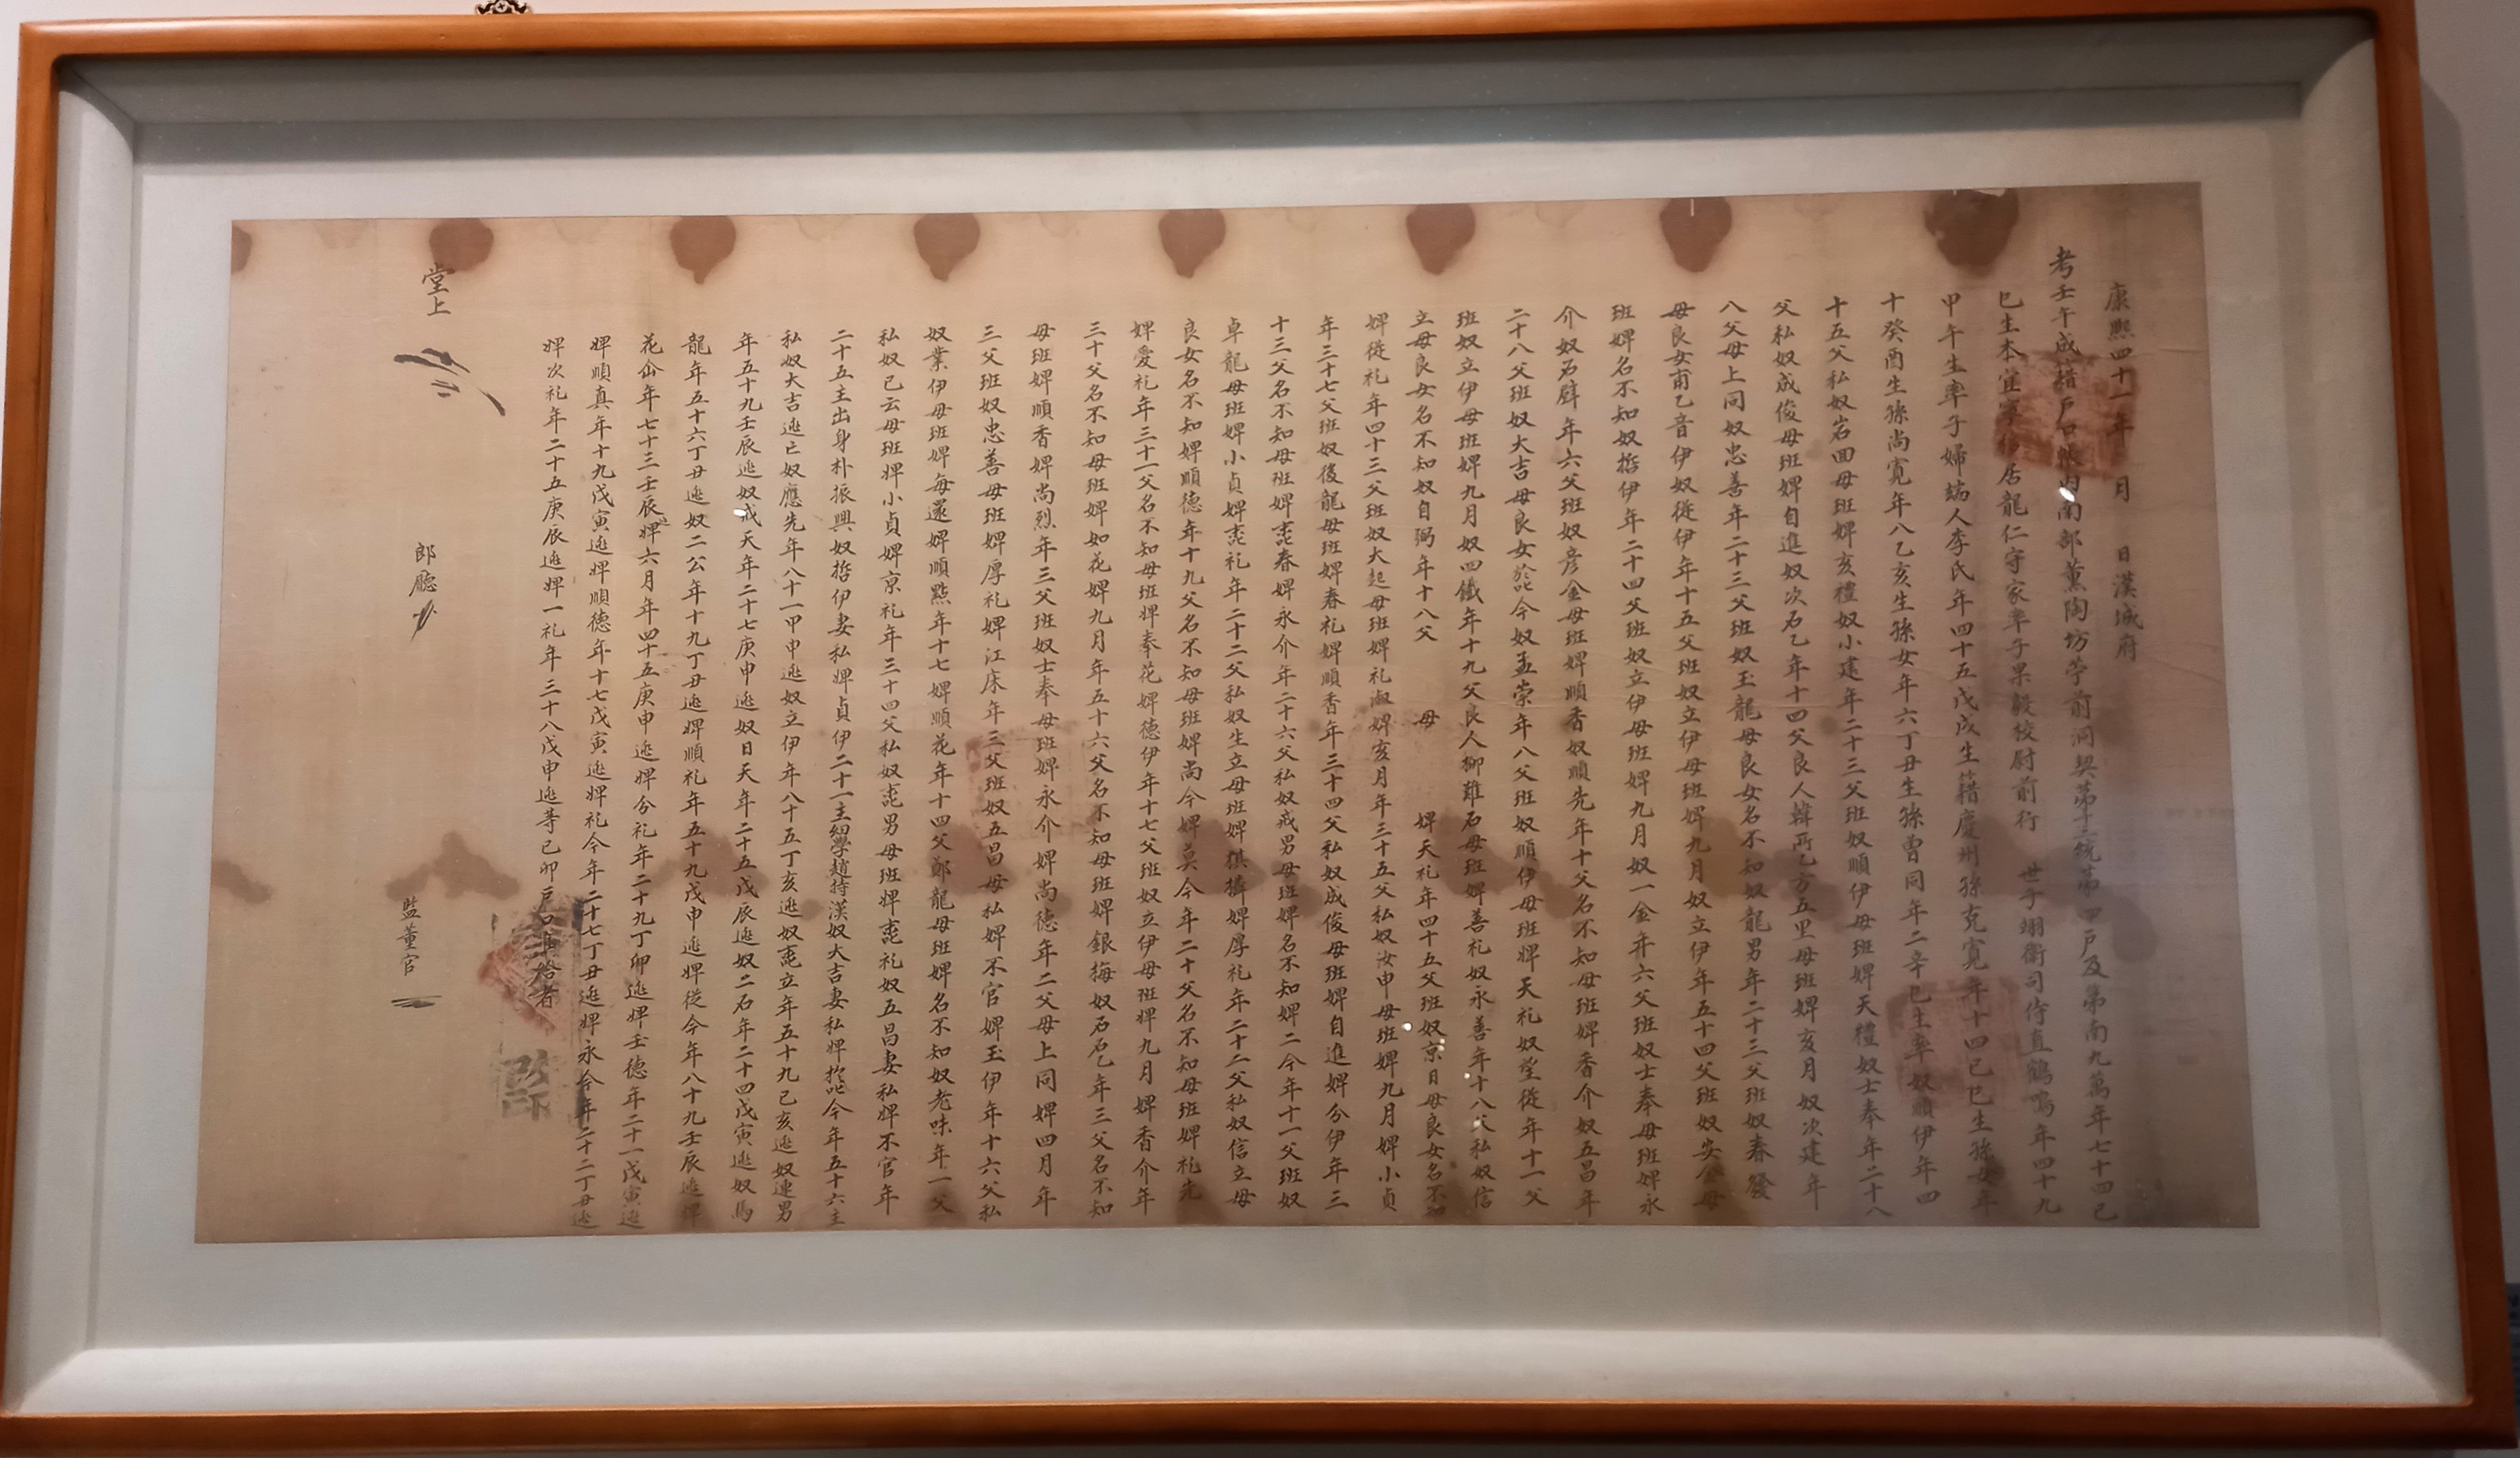 康熙四十一年 月 日漢城府
考壬午成籍戶口帳內南部薰陶坊苧前洞契第三統第四戶及第南九萬年七十四己
巳生本宜寧 居龍仁守家率子果毅校尉前行 世子翊衛司侍直鶴鳴年四十九
甲午生率子婦端人李氏年四十五戊戌生籍慶州孫克寬年十四己巳生孫女年
十癸酉生孫尚寬年八乙亥生孫女年六丁丑生孫曾同年二辛巳生率奴順伊年四
十五父私奴岩回母班婢亥禮奴小建年二十三父班奴順伊母班婢天禮奴士奉年二十八
父私奴成俊母班婢自進奴次石乙年十四父良人韓所乙方五里母班婢亥月奴次建年
八父母上同奴忠善年二十三父班奴玉龍母良女名不知奴龍男年二十三父班奴春發
母良女甫乙音伊奴從伊年十五父班奴立伊母班婢九月奴立伊年五十四父班奴安金母
班婢名不知奴哲伊年二十四父班奴立伊母班婢九月奴一金年六父班奴士奉母班婢永
介奴石辟年六父班奴彦金母班婢順香奴順先年十父名不知母班婢香介奴五昌年
二十八父班奴大吉母良女於叱今奴孟崇年八父班奴順伊母班婢天礼奴莹從年十一父
班奴立伊母班婢九月奴四鐵年十九父良人柳難石母班婢善礼奴永善年十八父私奴信
立母良女名不知奴自弼年十八父 母 婢天礼年四十五父班奴京日母良女名不知
婢從礼年四十三父班奴大起母班婢礼淑婢亥月年三十五父私奴汝申母班婢九月婢小貞
年三十七父班奴後龍母班婢春礼婢順香年三十四父私奴成俊母班婢自進婢分伊年三
十三父名不知母班婢春婢永介年二十六父私奴戒男母班婢名不知婢二今年十一父班奴
卓龍母班婢小貞婢礼年二十二父私奴生立母班婢婢厚礼年二十二父私奴信立母
良女名不知婢順德年十九父名不知母班婢尚今婢莫今年二十父名不知母班婢礼先
婢愛礼年三十一父名不知母班婢奉花婢德伊年十七父班奴立伊母班婢九月婢香介年
三十父名不知母班婢如花婢九月年五十六父名不知母班婢銀梅奴石乙年三父名不知
母班婢順香婢尚烈年三父班奴士奉母班婢永介婢尚德年二父母上同婢四月年
三父班奴忠善母班婢厚礼婢江床年三父班奴五昌母私婢不官婢玉伊年十六父私
奴業伊母班婢每還婢順點年十七婢順花年十四父鄭龍母班婢名不知奴老味年一父
私奴己云母班婢小貞婢京礼年三十四父私奴男母班婢礼奴五昌妻私婢不官年
二十五主出身朴振興奴哲伊妻私婢貞伊二十一主幼學趙持漢奴大吉妻私婢於叱今年五十六主
私奴大吉逃亡奴應先年八十一甲申逃奴立伊年八十五丁亥逃奴立年五十九己亥逃奴連男
年五十九壬辰逃奴戒天年二十七庚申逃奴日天年二十五戊辰逃奴二石年二十四戊寅逃奴馬
龍年五十六丁丑逃奴二公年十九丁丑逃婢順礼年五十九戊申逃婢從今年八十九壬辰逃婢
花年七十三壬辰婢六月年四十五庚申逃婢分礼年二十九丁卯逃婢壬德年二十一戊寅逃
婢順真年十九戊寅逃婢順德年十七戊寅逃婢礼今年二十七丁丑逃婢永今年二十二丁丑逃
婢次礼年二十五庚辰逃婢一礼年三十八戊申逃等己卯戶口準給者
堂上
郎廳
監董官